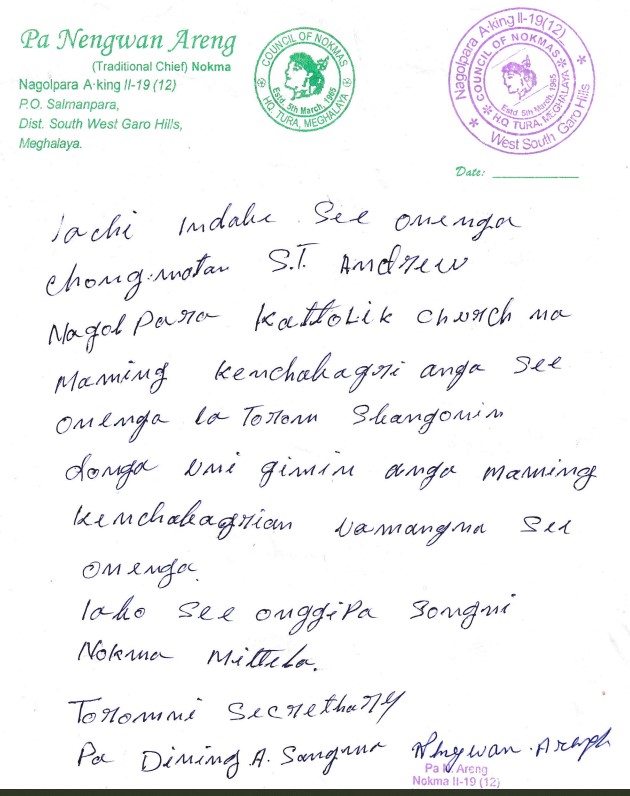 Pa Nengwan Areng
(Traditional Chief) Nokma
Nagolpara A·king II-19 (12)
P.O. Salmanpara,
Dist. South West Garo Hills,
Meghalaya.
COUNCIL OF NOKMAS
Estd. 5th March, 1965
H.Q. TURA, MEGHALAYA
Nagolpara A·king II-19(12)
COUNCIL OF NOKMAS
Estd. 5th March, 1965
H.Q. TURA, MEGHALAYA
West South Garo Hills
Date:
Iachi Indake See onenga
Chong·motan S.T. Andrew
Nagol Para Kattolik Church na
Maming kenchakagri anga See
onenga Ia Torom
donga uni gimin anga maming
kenchakagrian uamangna See
onenga.
Iako See onggiPa Songni
Nokma Mittela.
Toromni Secrethary
Pa Dining A. Sangma Nengwan Areng
Pa N. Areng
Nokma II-19 (12)